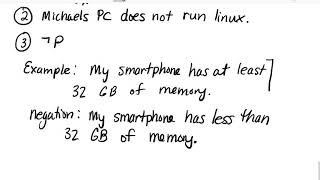 ② Michaels PC does not run linux.
③ ¬P
Example: My smartphone has at least
32 GB of memory.
negation: My smartphone has less than
32 GB of memory.